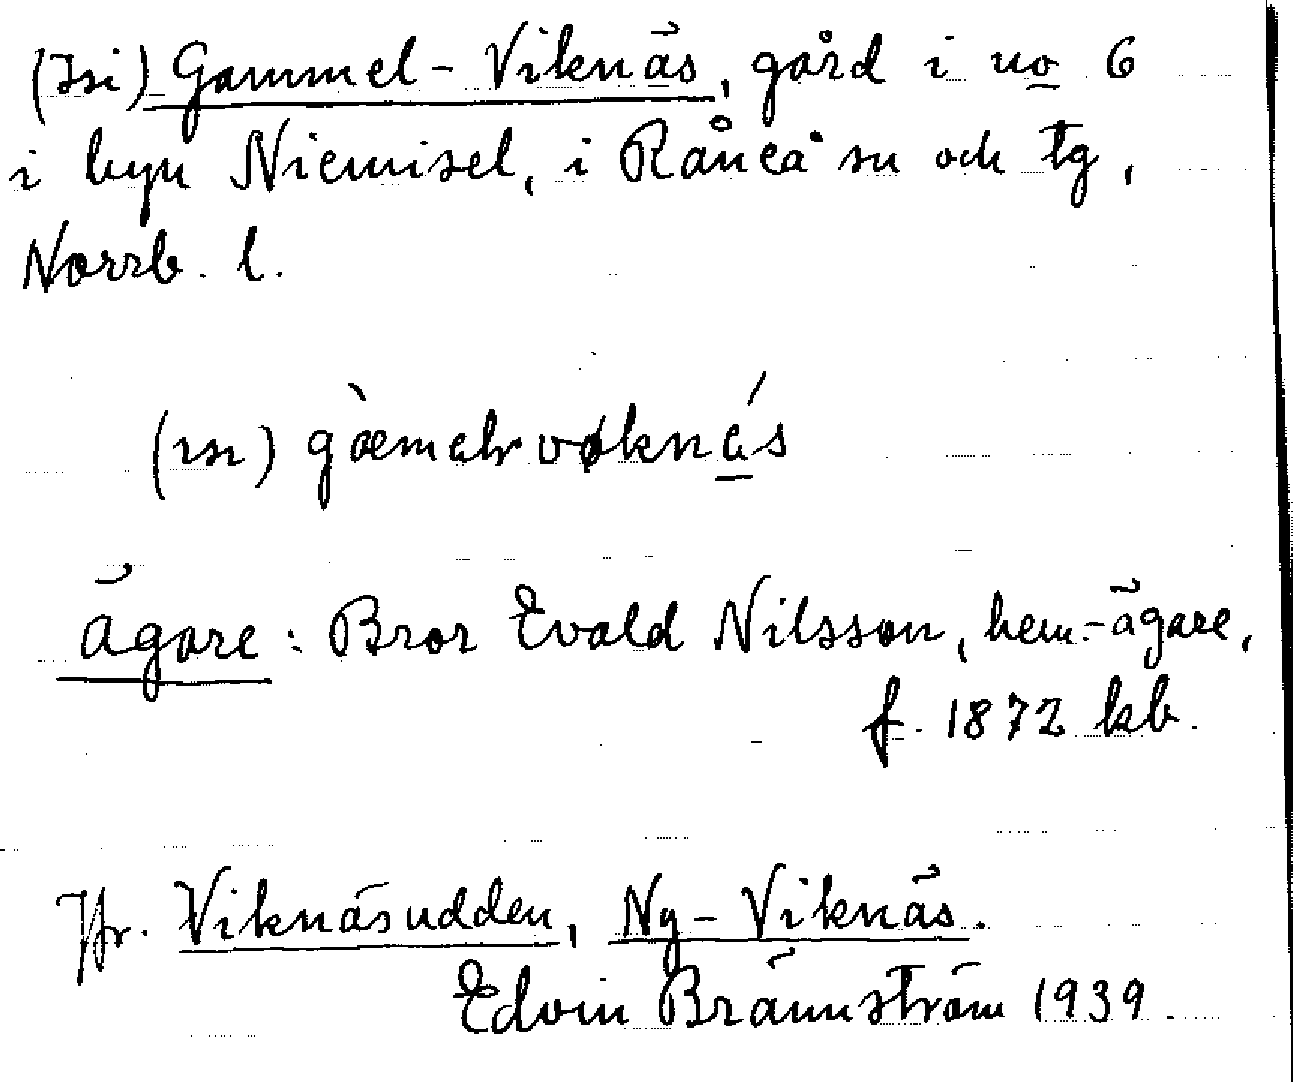 (Isi) Gammel-Viknäs, gård i no 6
i byn Niemisel, i Råneå sn och tg,
Norrb. l.
(sn)
Ägare: Bror Evald Nilsson, hem.-ägare,
f. 1872 kb.
Jfr. Viknäsudden, Ny-Viknäs.
Edvin Brännström 1939.